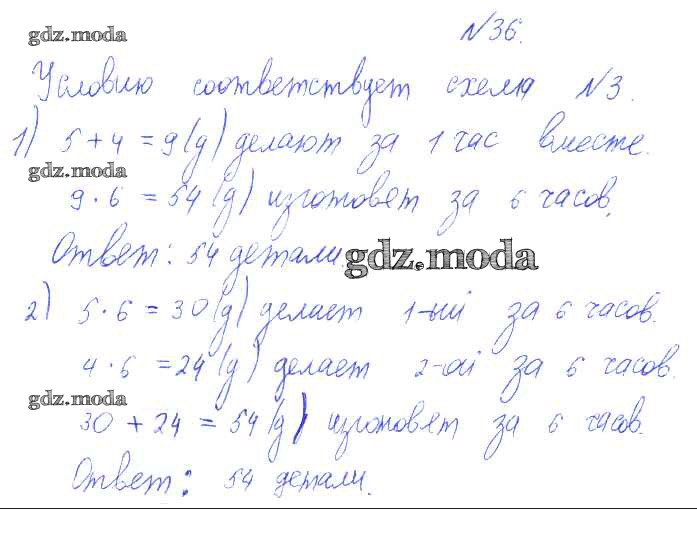 gdz.moda
№36.
Условию соответствует схема №3.
1) 5 + 4 = 9 (д) делают за 1 час вместе.
gdz.moda
9 · 6 = 54 (д) изготовят за 6 часов.
Ответ: 54 детали.
gdz.moda
2) 5 · 6 = 30 (д) делает 1-ый за 6 часов.
4 · 6 = 24 (д) делает 2-ой за 6 часов.
gdz.moda
30 + 24 = 54 (д) изготовят за 6 часов.
Ответ: 54 детали.